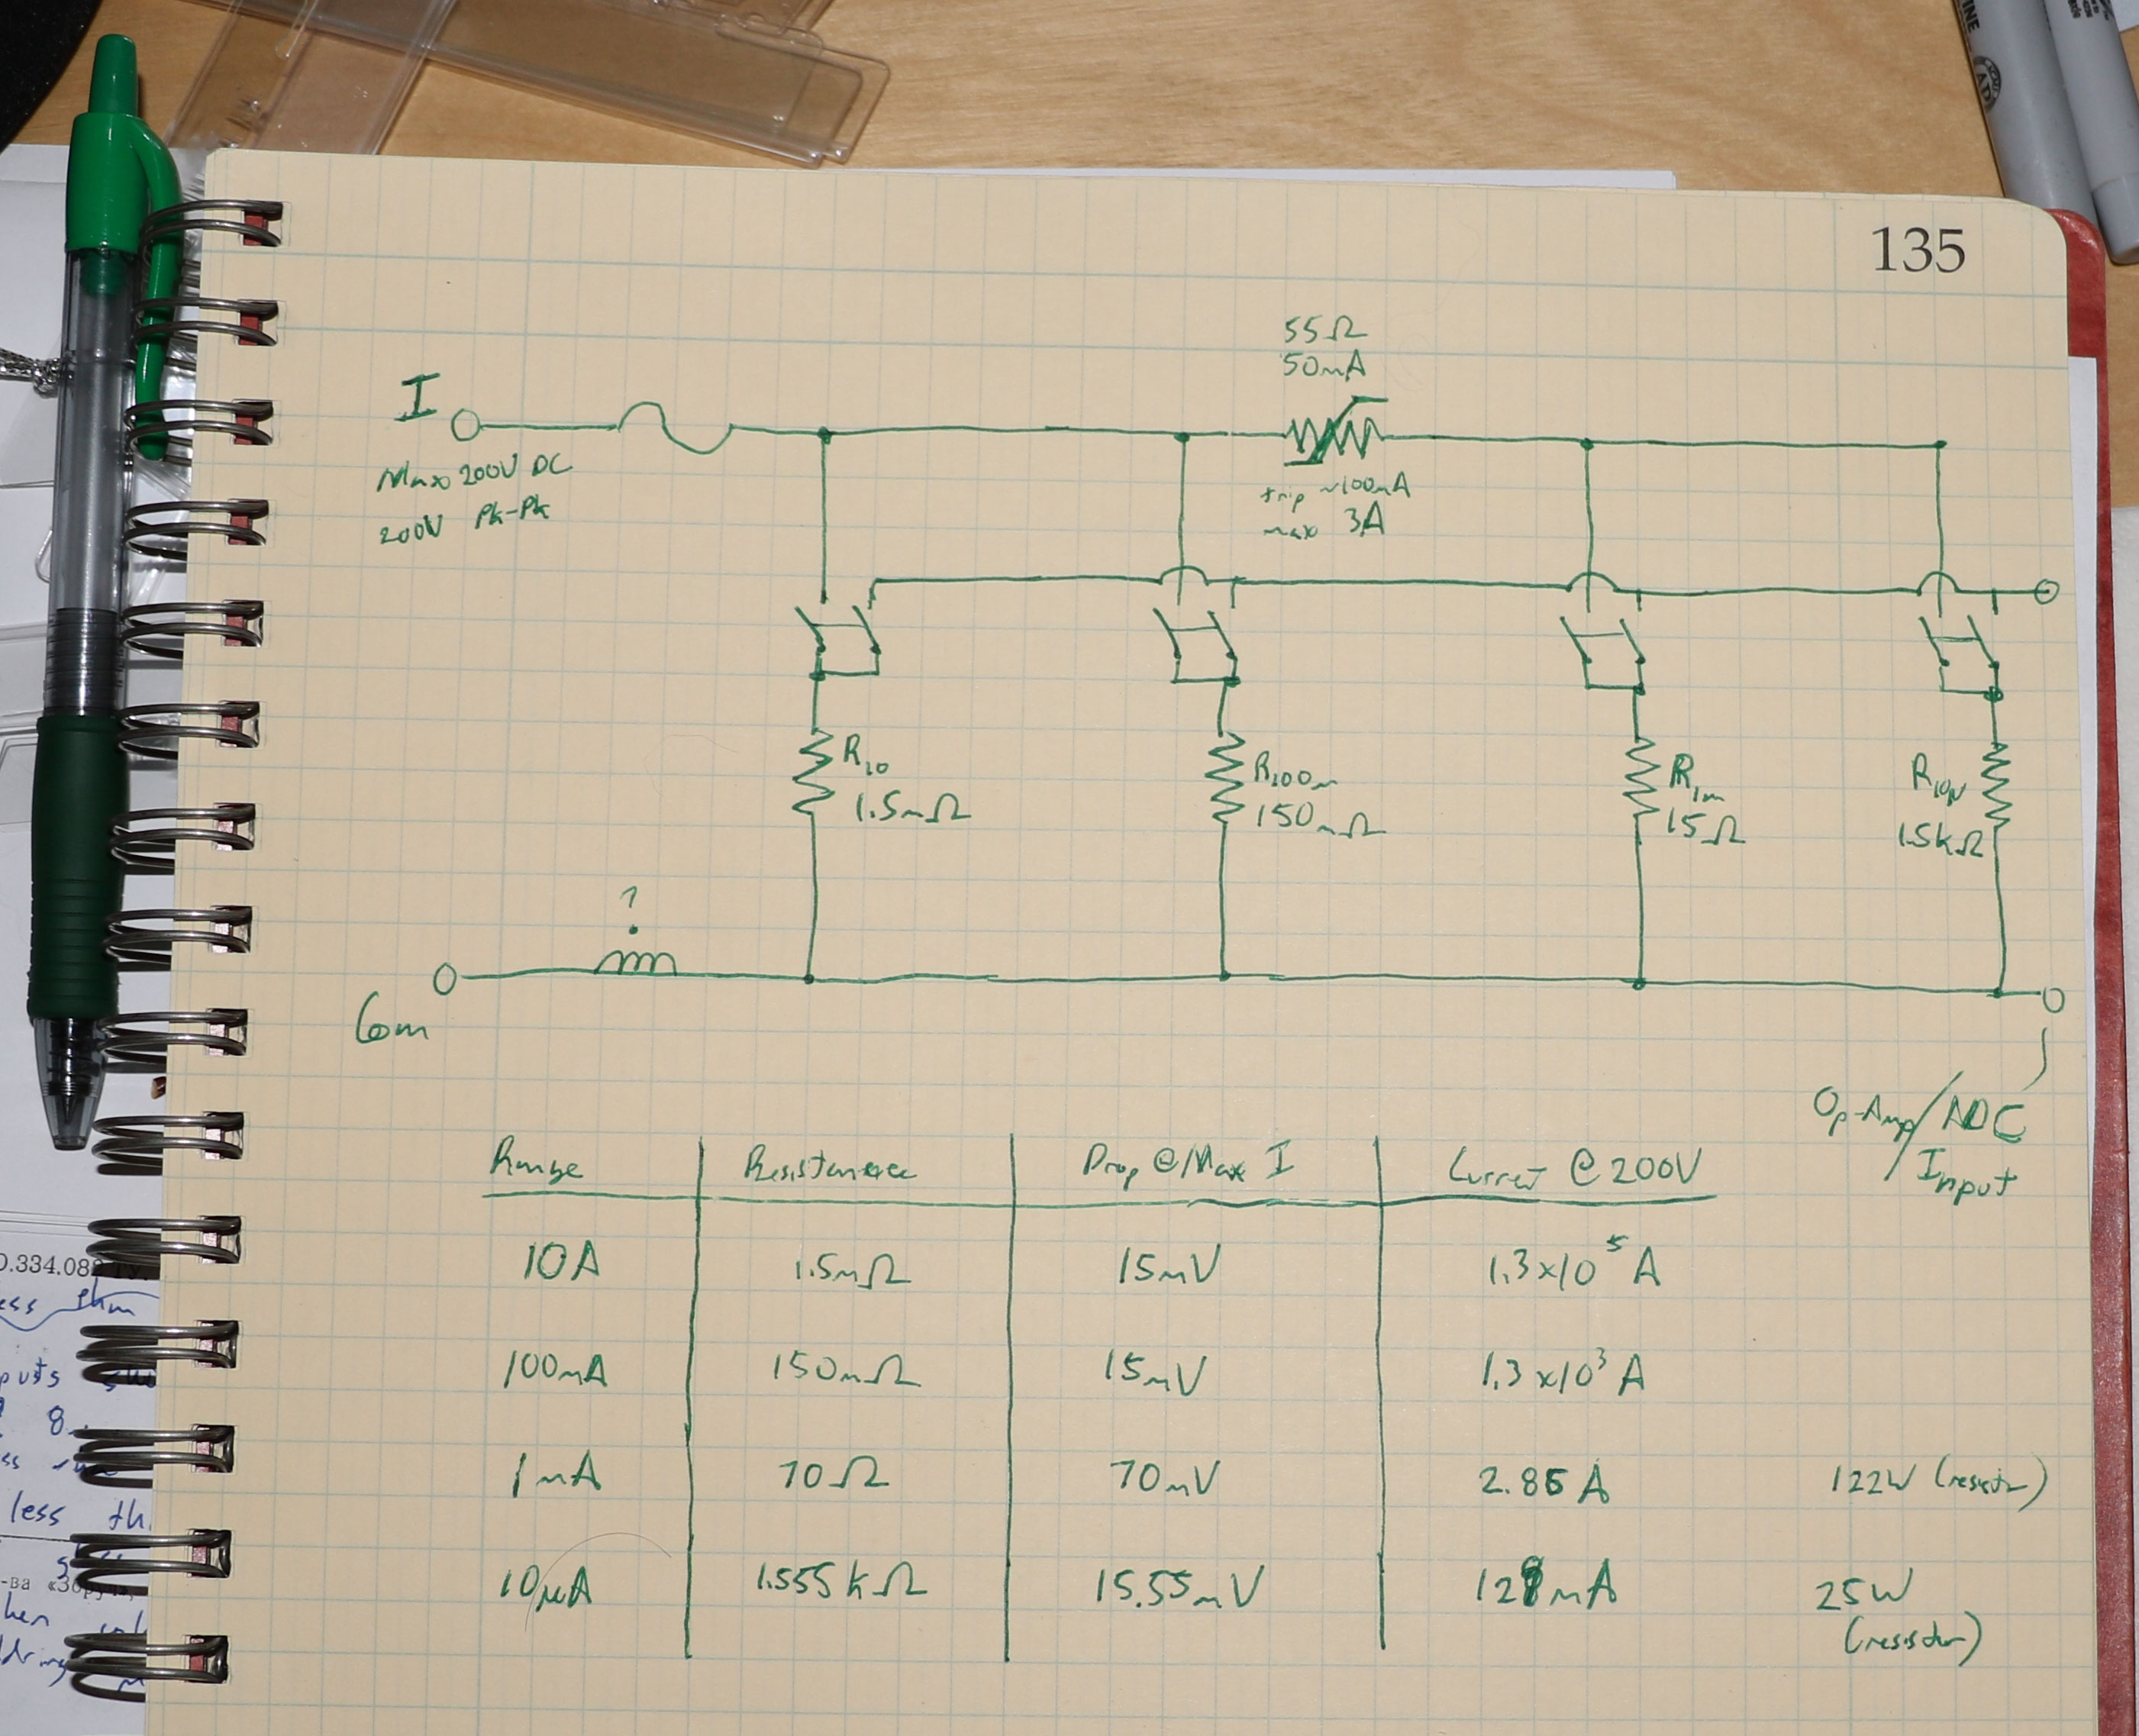 FINE
AD
135
55Ω
50mA
I
Max 200V DC
200V Pk-Pk
trip ~100mA
max 3A
R10
1.5mΩ
R100m
150mΩ
R1m
15Ω
R10μ
1.5kΩ
?
Com
Op-Amp/ADC
Input
Range Resistance Drop @ Max I Current @ 200V
10A 1.5mΩ 15mV 1.3x10⁵ A
100mA 150mΩ 15mV 1.3x10³ A
1mA 70Ω 70mV 2.85 A 122W (resistor)
10μA 1.555kΩ 15.55mV 128mA 25W
(resistor)
0.334.08
ess than
puts
8.
ss
less th
-ва «Зор